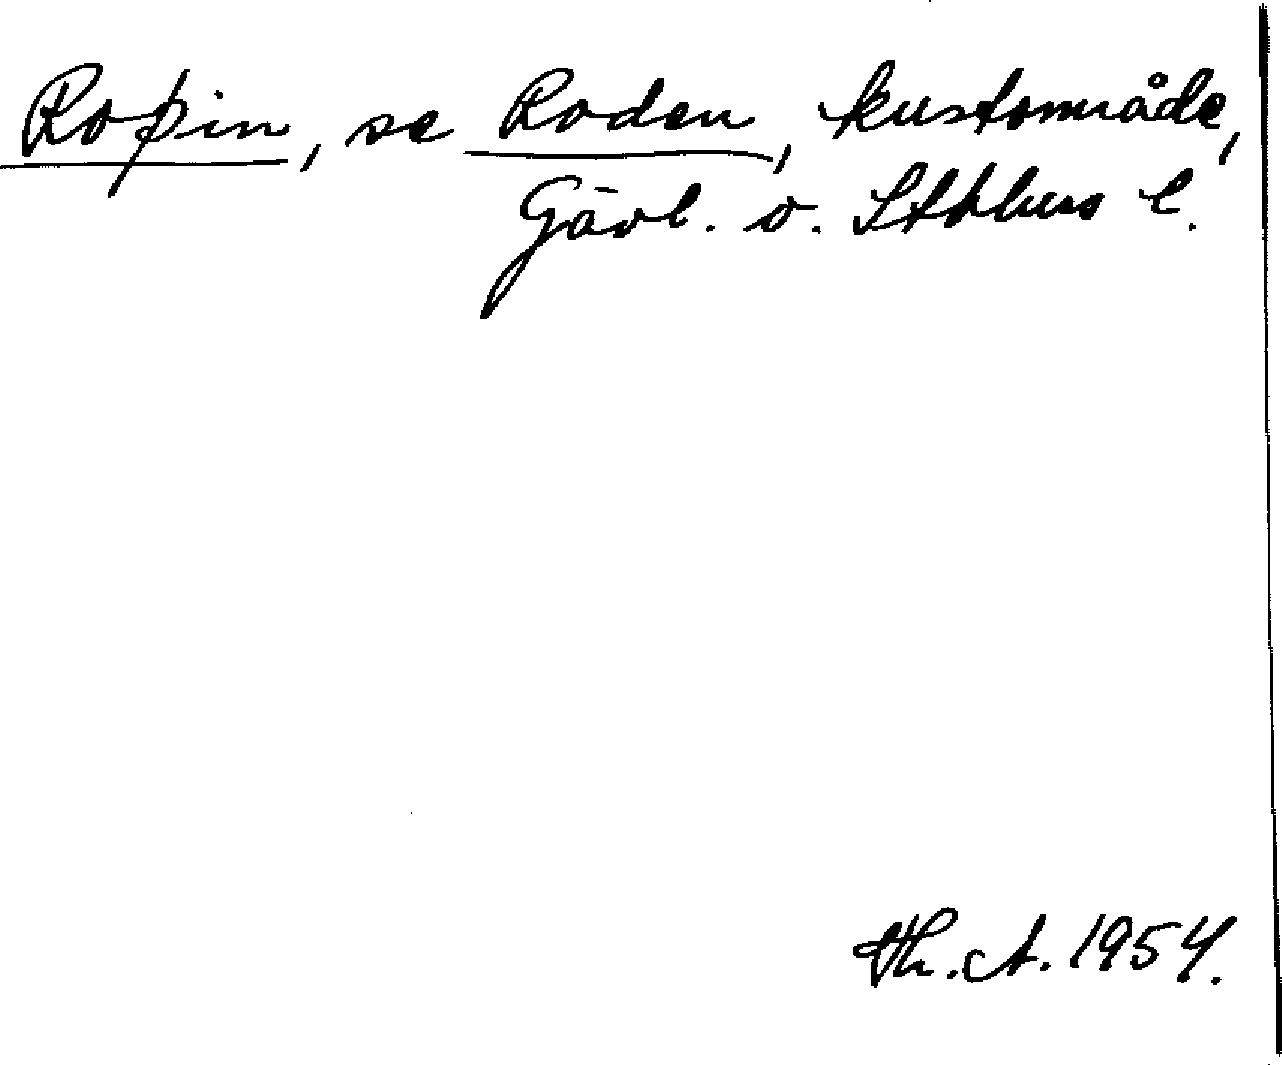 Roþin, se Roden, kustområde,
Gävl. o. Sthlms l.
Th. A. 1954.